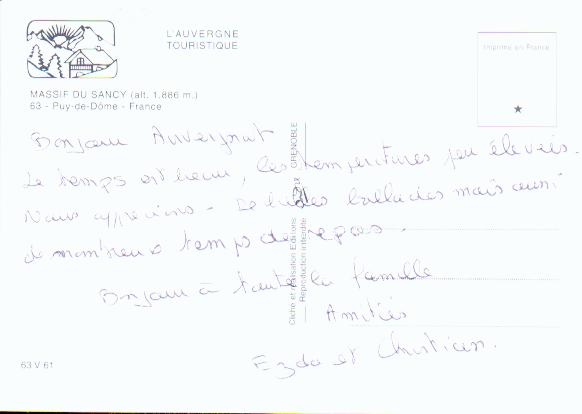 L'AUVERGNE
TOURISTIQUE
Imprimé en France
MASSIF DU SANCY (alt. 1.886 m.)
63 - Puy-de-Dôme - France
Bonjour Auvergnat
Le temps est beau, les températures peu élevées.
Nous apprécions - De belles ballades mais aussi
de nombreux temps de repos.
Bonjour à toute la famille
Amitiés
et Christian.
63 V 61
Cliché et réalisation Editions GRENOBLE
Reproduction interdite